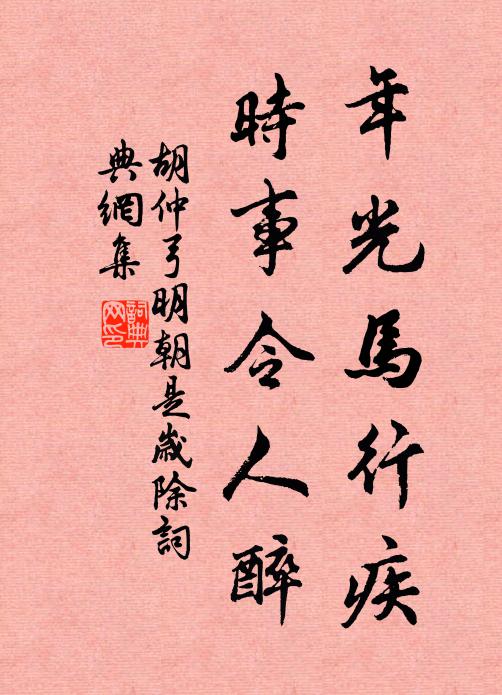 年光馬行疾
時事令人醉
胡仲弓明朝是歲除詞
典網集
詞典
网印